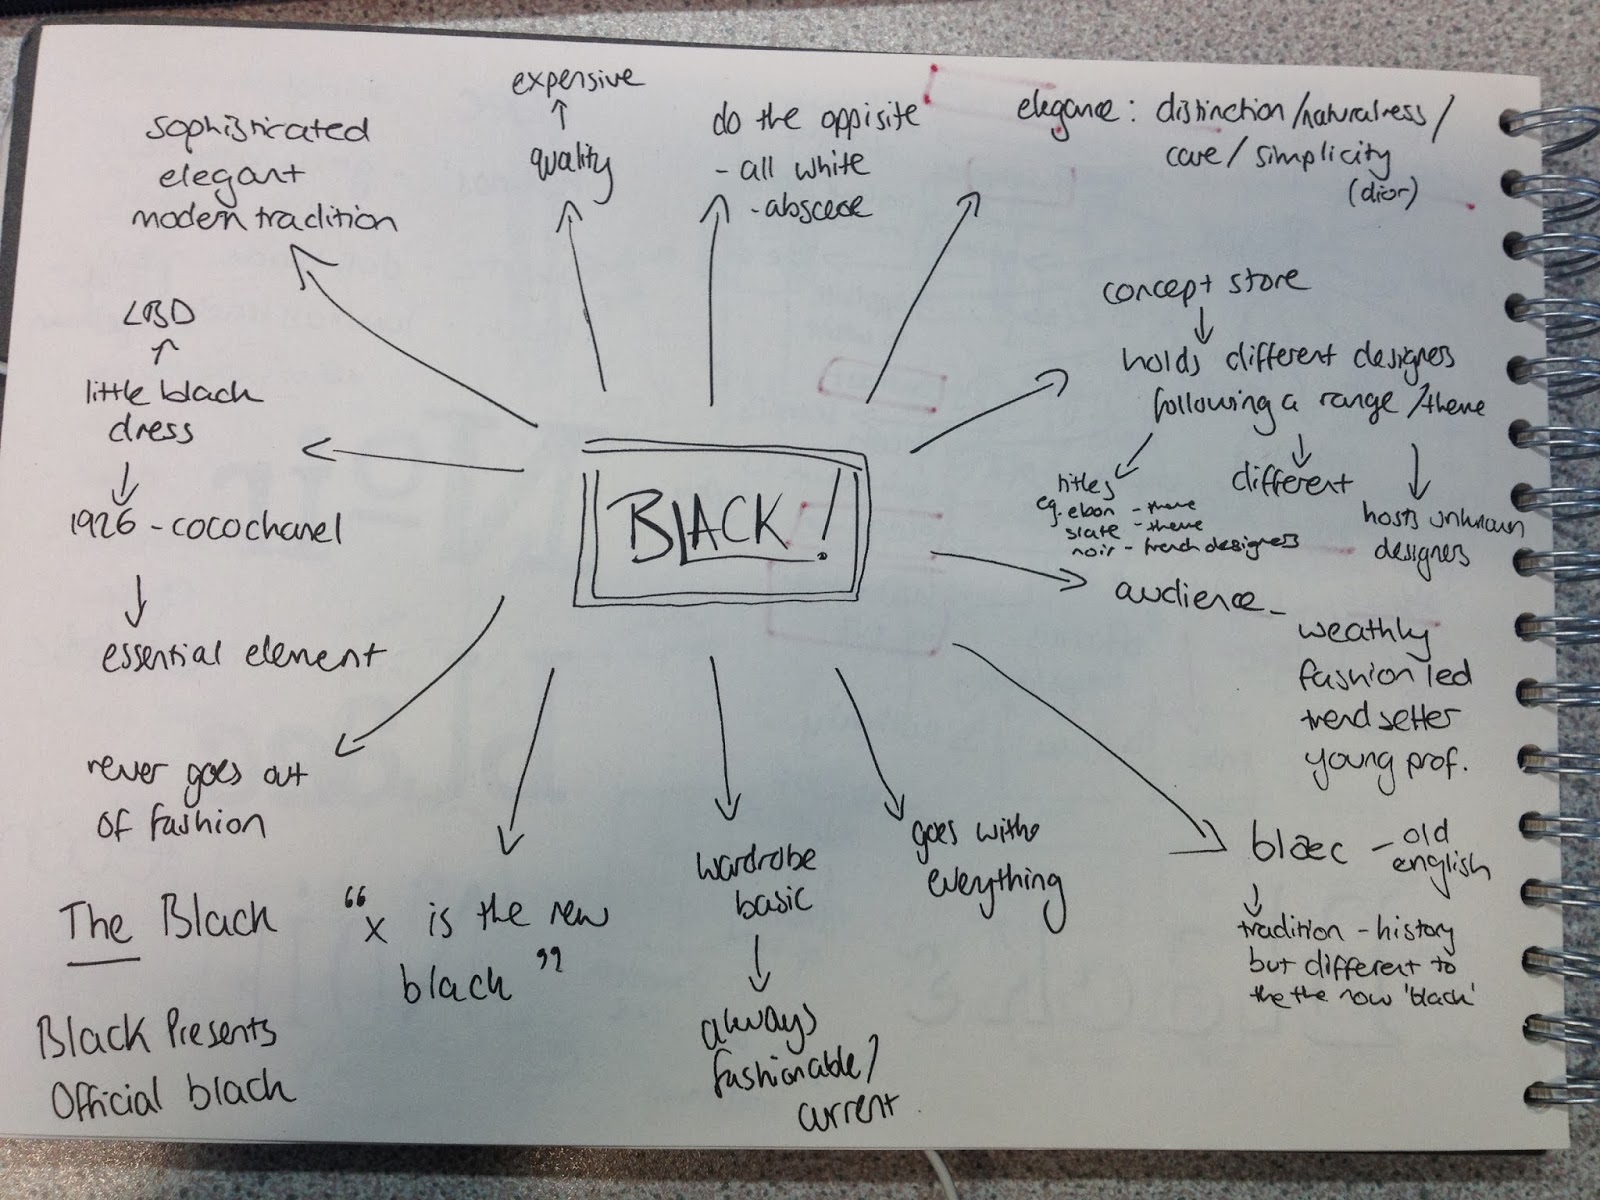 expensive
quality
sophisticated
elegant
modern tradition
do the oppisite
- all white
- abscece
elegance: distinction/naturalness/
care/ simplicity
(dior)
concept store
holds different designers
following a range/theme
titles
eg. ebon - theme
slate - theme
noir - french designers
different
hosts unknown
designers
LBD
little black
dress
1926 - coco chanel
essential element
BLACK!
audience -
weathly
fashion led
trend setter
young prof.
never goes out
of fashion
"x is the new
black"
wardrobe
basic
always
fashionable/
current
goes with
everything
blæc - old
english
tradition - history
but different to
the the now 'black'
The Black
Black Presents
Official black